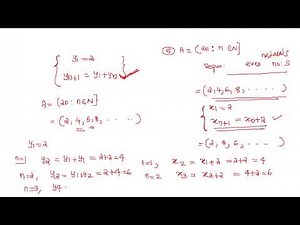 y₁=2
yₙ₊₁ = y₁+yₙ
A= {2n : n∈N}
= (2, 4, 6, 8, . . . . )
y₁=2
n=1, y₂ = y₁+y₁ = 2+2=4
n=2, y₃ = y₁+y₂ = 2+4=6
n=3, y₄
A= {2n : n∈N}
naturals
even no:s
= (2, 4, 6, 8, . . . . )
x₁=2
xₙ₊₁ = xₙ+2
= (2, 4, 6, 8, . . . . )
n=1, x₂ = x₁+2 = 2+2 = 4
n=2 x₃ = x₂+2 = 4+2=6